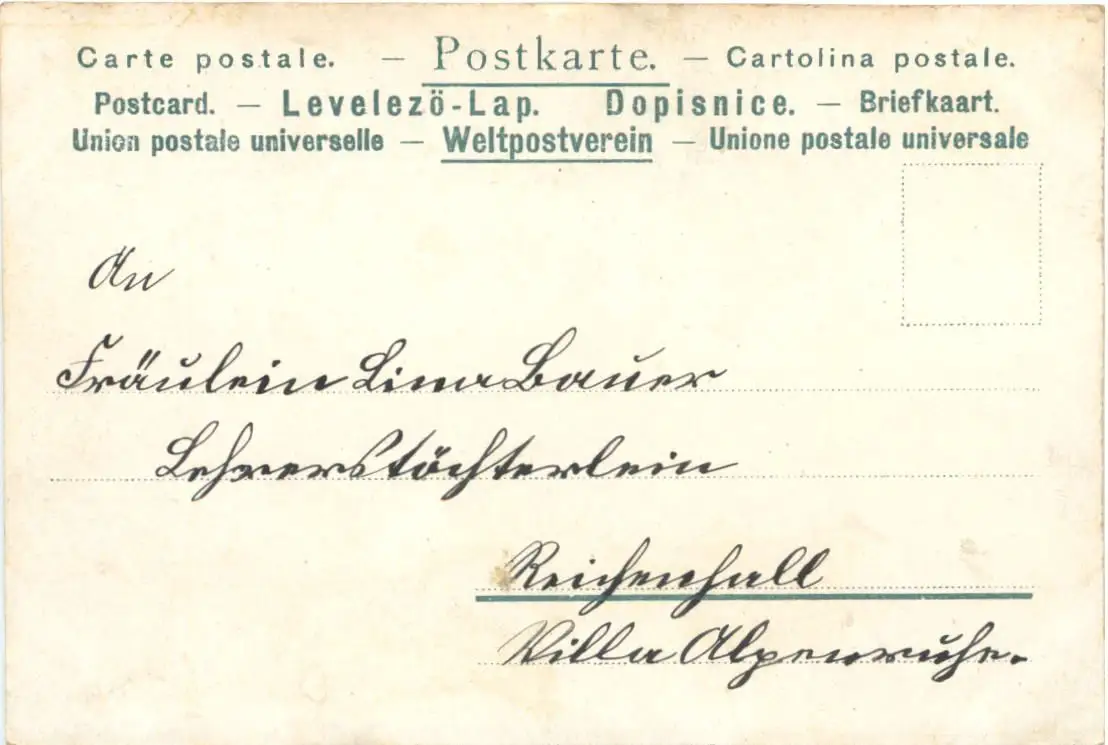 Carte postale. — Postkarte. — Cartolina postale.
Postcard. — Levelező-Lap. Dopisnice. — Briefkaart.
Union postale universelle — Weltpostverein — Unione postale universale
An
Fräulein Lina Bauer
Lehrerstöchterlein
Reichenhall
Villa Alpenruhe.